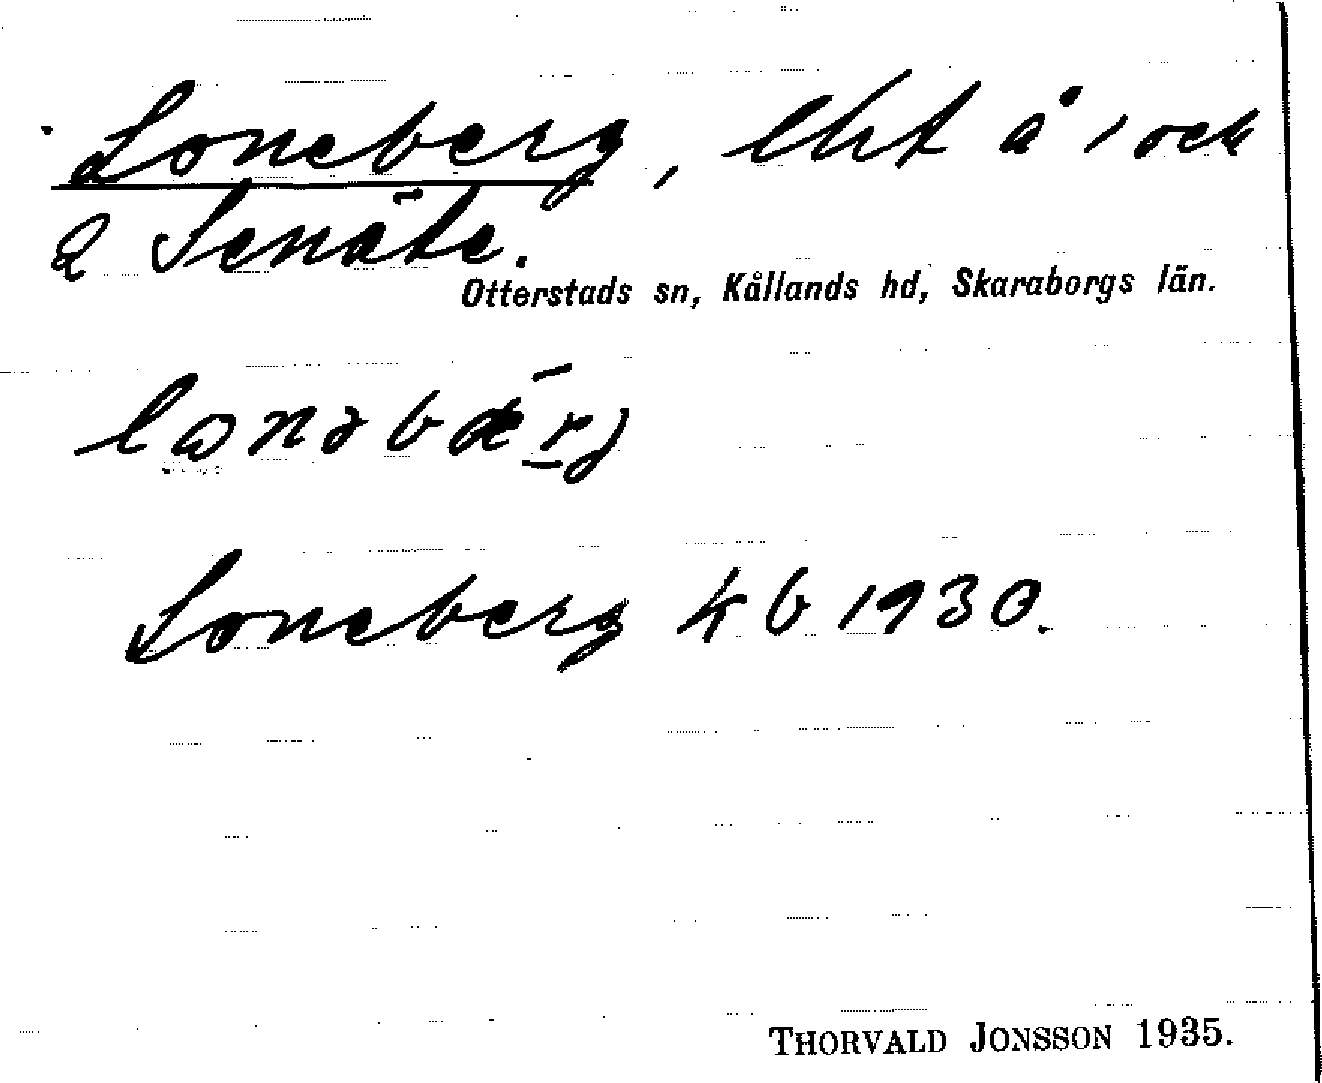 Loneberg, lht å 1 och
2 Senäte.
Otterstads sn, Kållands hd, Skaraborgs län.
lonəbærj
Loneberg kb 1930.
THORVALD JONSSON 1935.